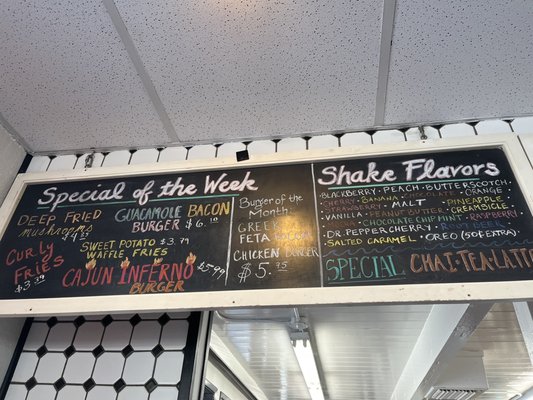 Special of the Week
DEEP FRIED
MUSHROOMS
$4.25
CURLY
FRIES
$3.39
GUACAMOLE BACON
BURGER $6.
SWEET POTATO $3.79
WAFFLE FRIES
CAJUN INFERNO $5.99
BURGER
Burger of the
Month:
GREEK
FETA
CHICKEN BURGER
$5.95
Shake Flavors:
BLACKBERRY • PEACH • BUTTERSCOTCH
CHERRY • BANANA • CHOCOLATE • ORANGE
STRAWBERRY • MALT • PINEAPPLE
VANILLA • PEANUT BUTTER • CREAMSICLE
CHOCOLATE CHIP MINT • RASPBERRY
DR. PEPPER CHERRY • ROOT BEER
SALTED CARAMEL • OREO (50¢ EXTRA)
SPECIAL CHAI • TEA • LATTE